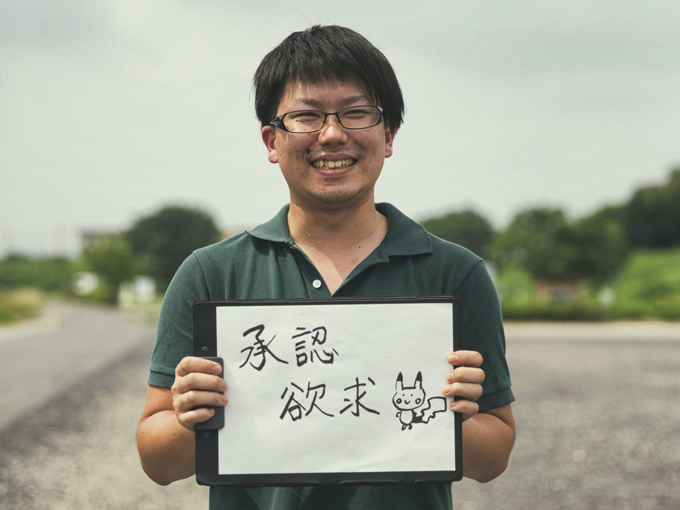 承認
欲求